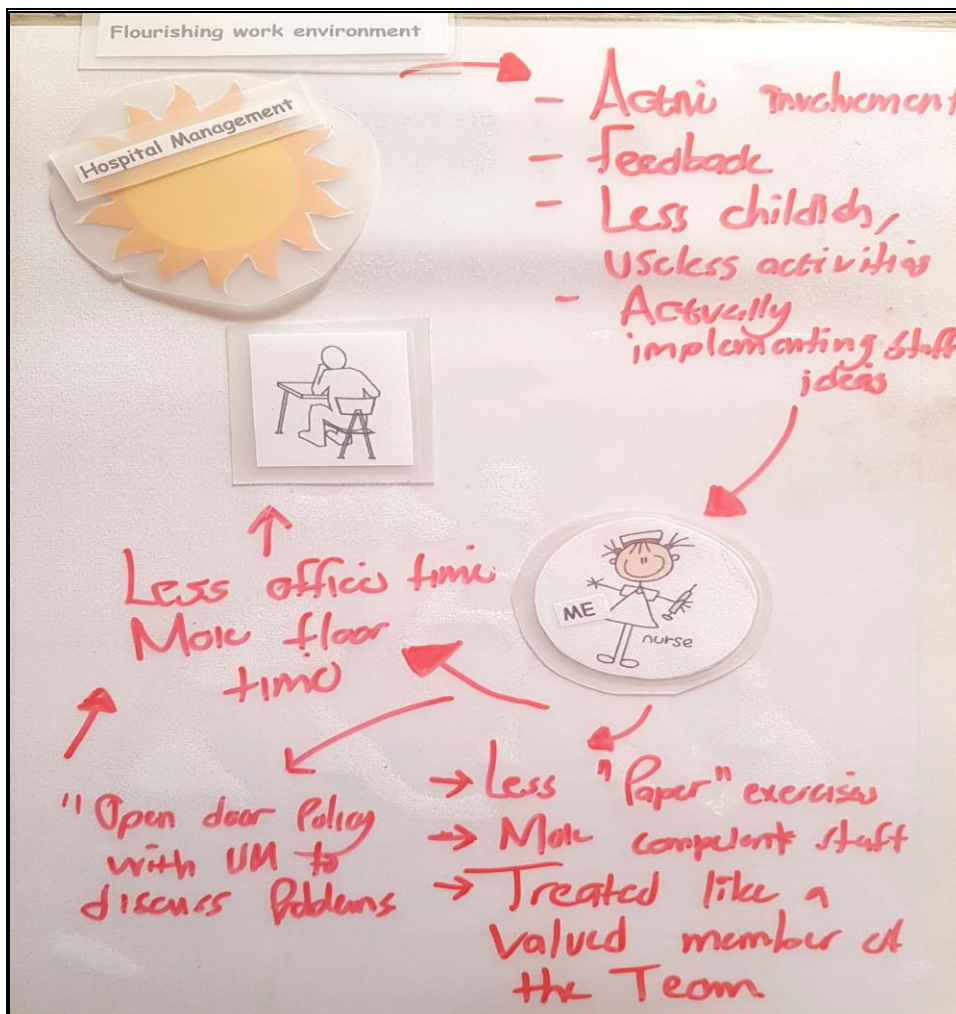 Flourishing work environment
Hospital Management
- Active involvement
- Feedback
- Less childish,
useless activities
- Actually
implementing staff
ideas
ME
nurse
Less office time
More floor
time
"Open door Policy
with UM to
discuss Problems
→ Less "Paper" exercises
→ More competent staff
→ Treated like a
valued member of
the Team